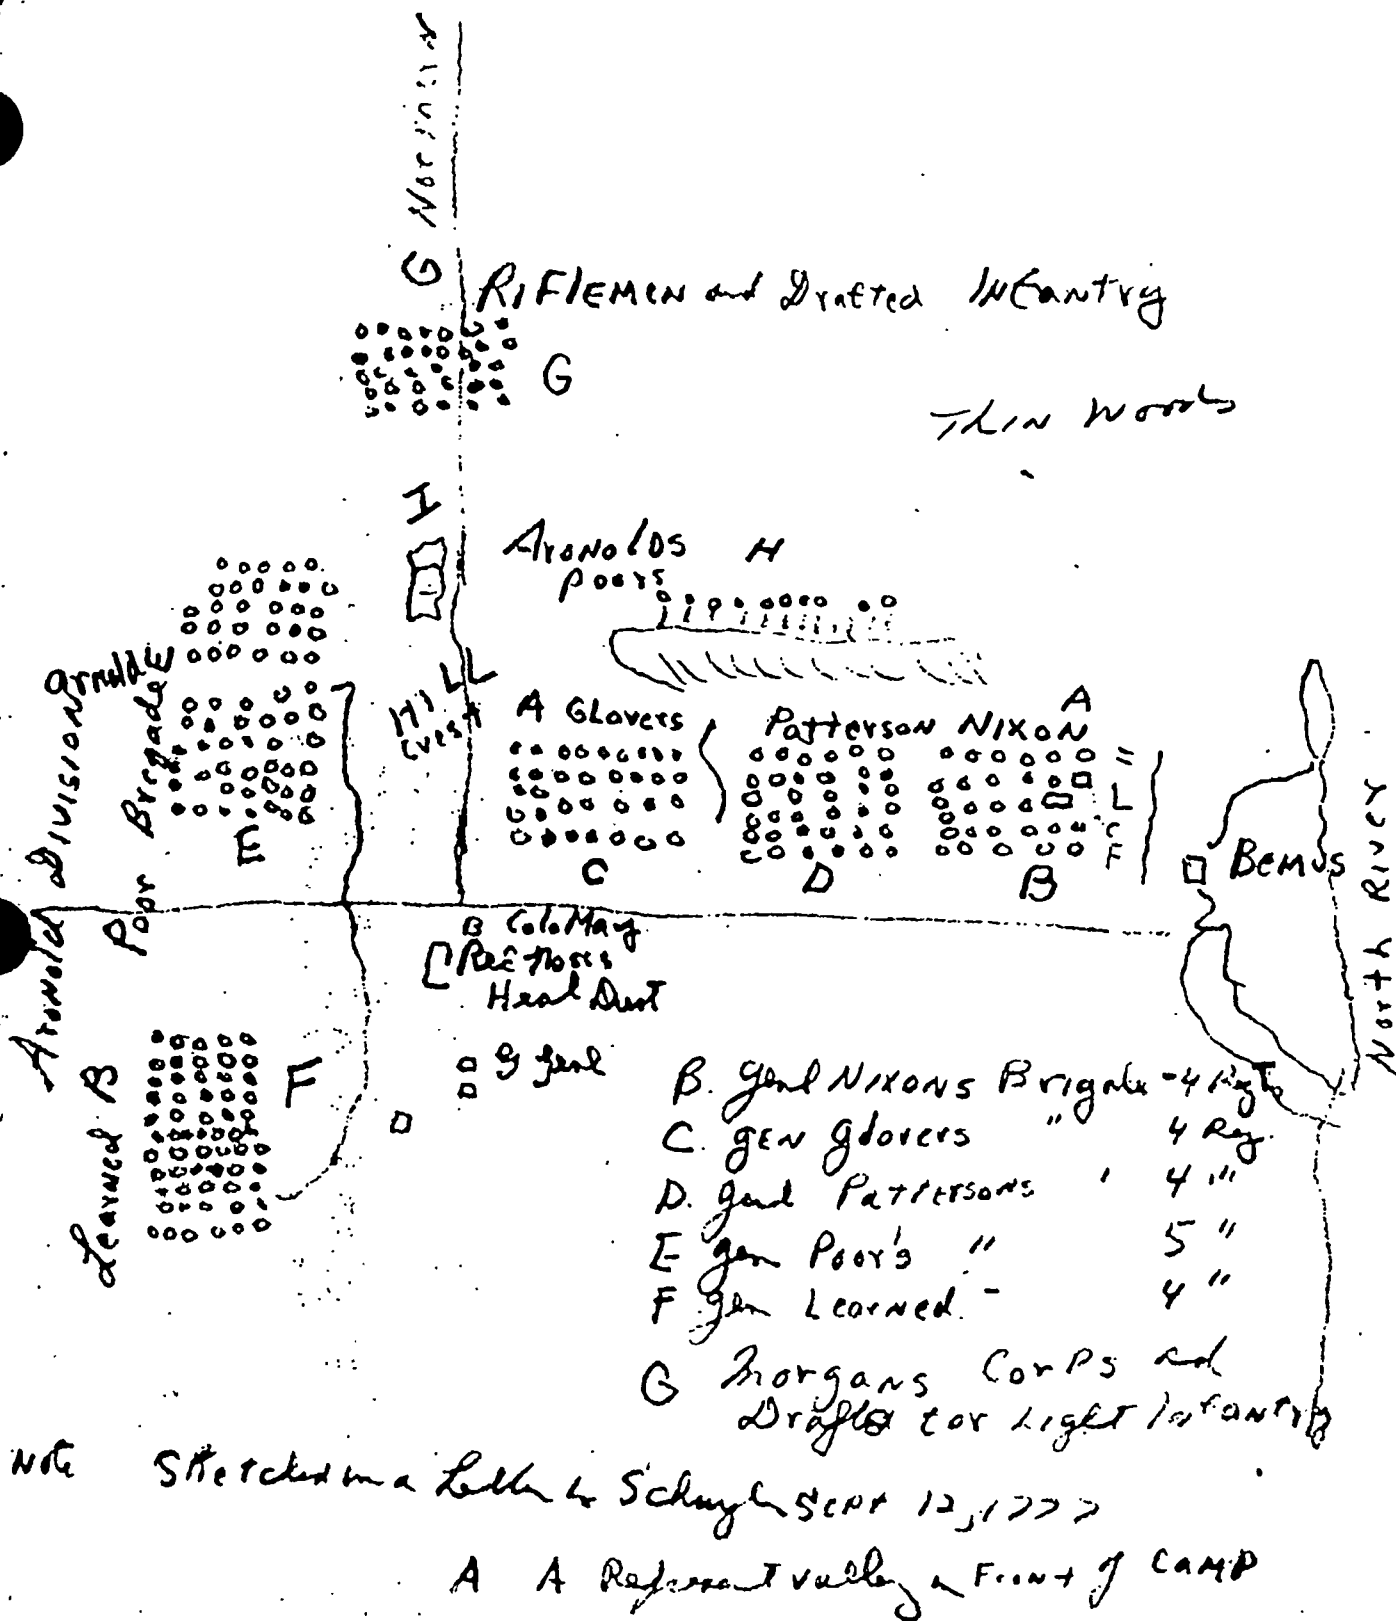 G
RIFLEMEN and Drafted INfantry
G
Thin Woods
I
ArONOlDS H
poors
Arnold
E
HILL
Crest
A GLovers
Patterson NIXON
A
L
F
Arnold Division
Poor Brigade
E
C
D
B
BEMUS
North River
B Colo May
Head Qurt
Learned B
F
G Genl
B. Genl NIXONS Brigade - 4 Regts
C. GEN Glovers " 4 Reg.
D. Genl PATTERSONS ' 4 "
E Gen Poor's " 5 "
F Gen Learned - 4 "
G Morgans Corps and
Drafted for Light Infantry
Note Sketched in a Letter to Schuyler Sept 12, 1777
A A Represent valley in Front of CAMP